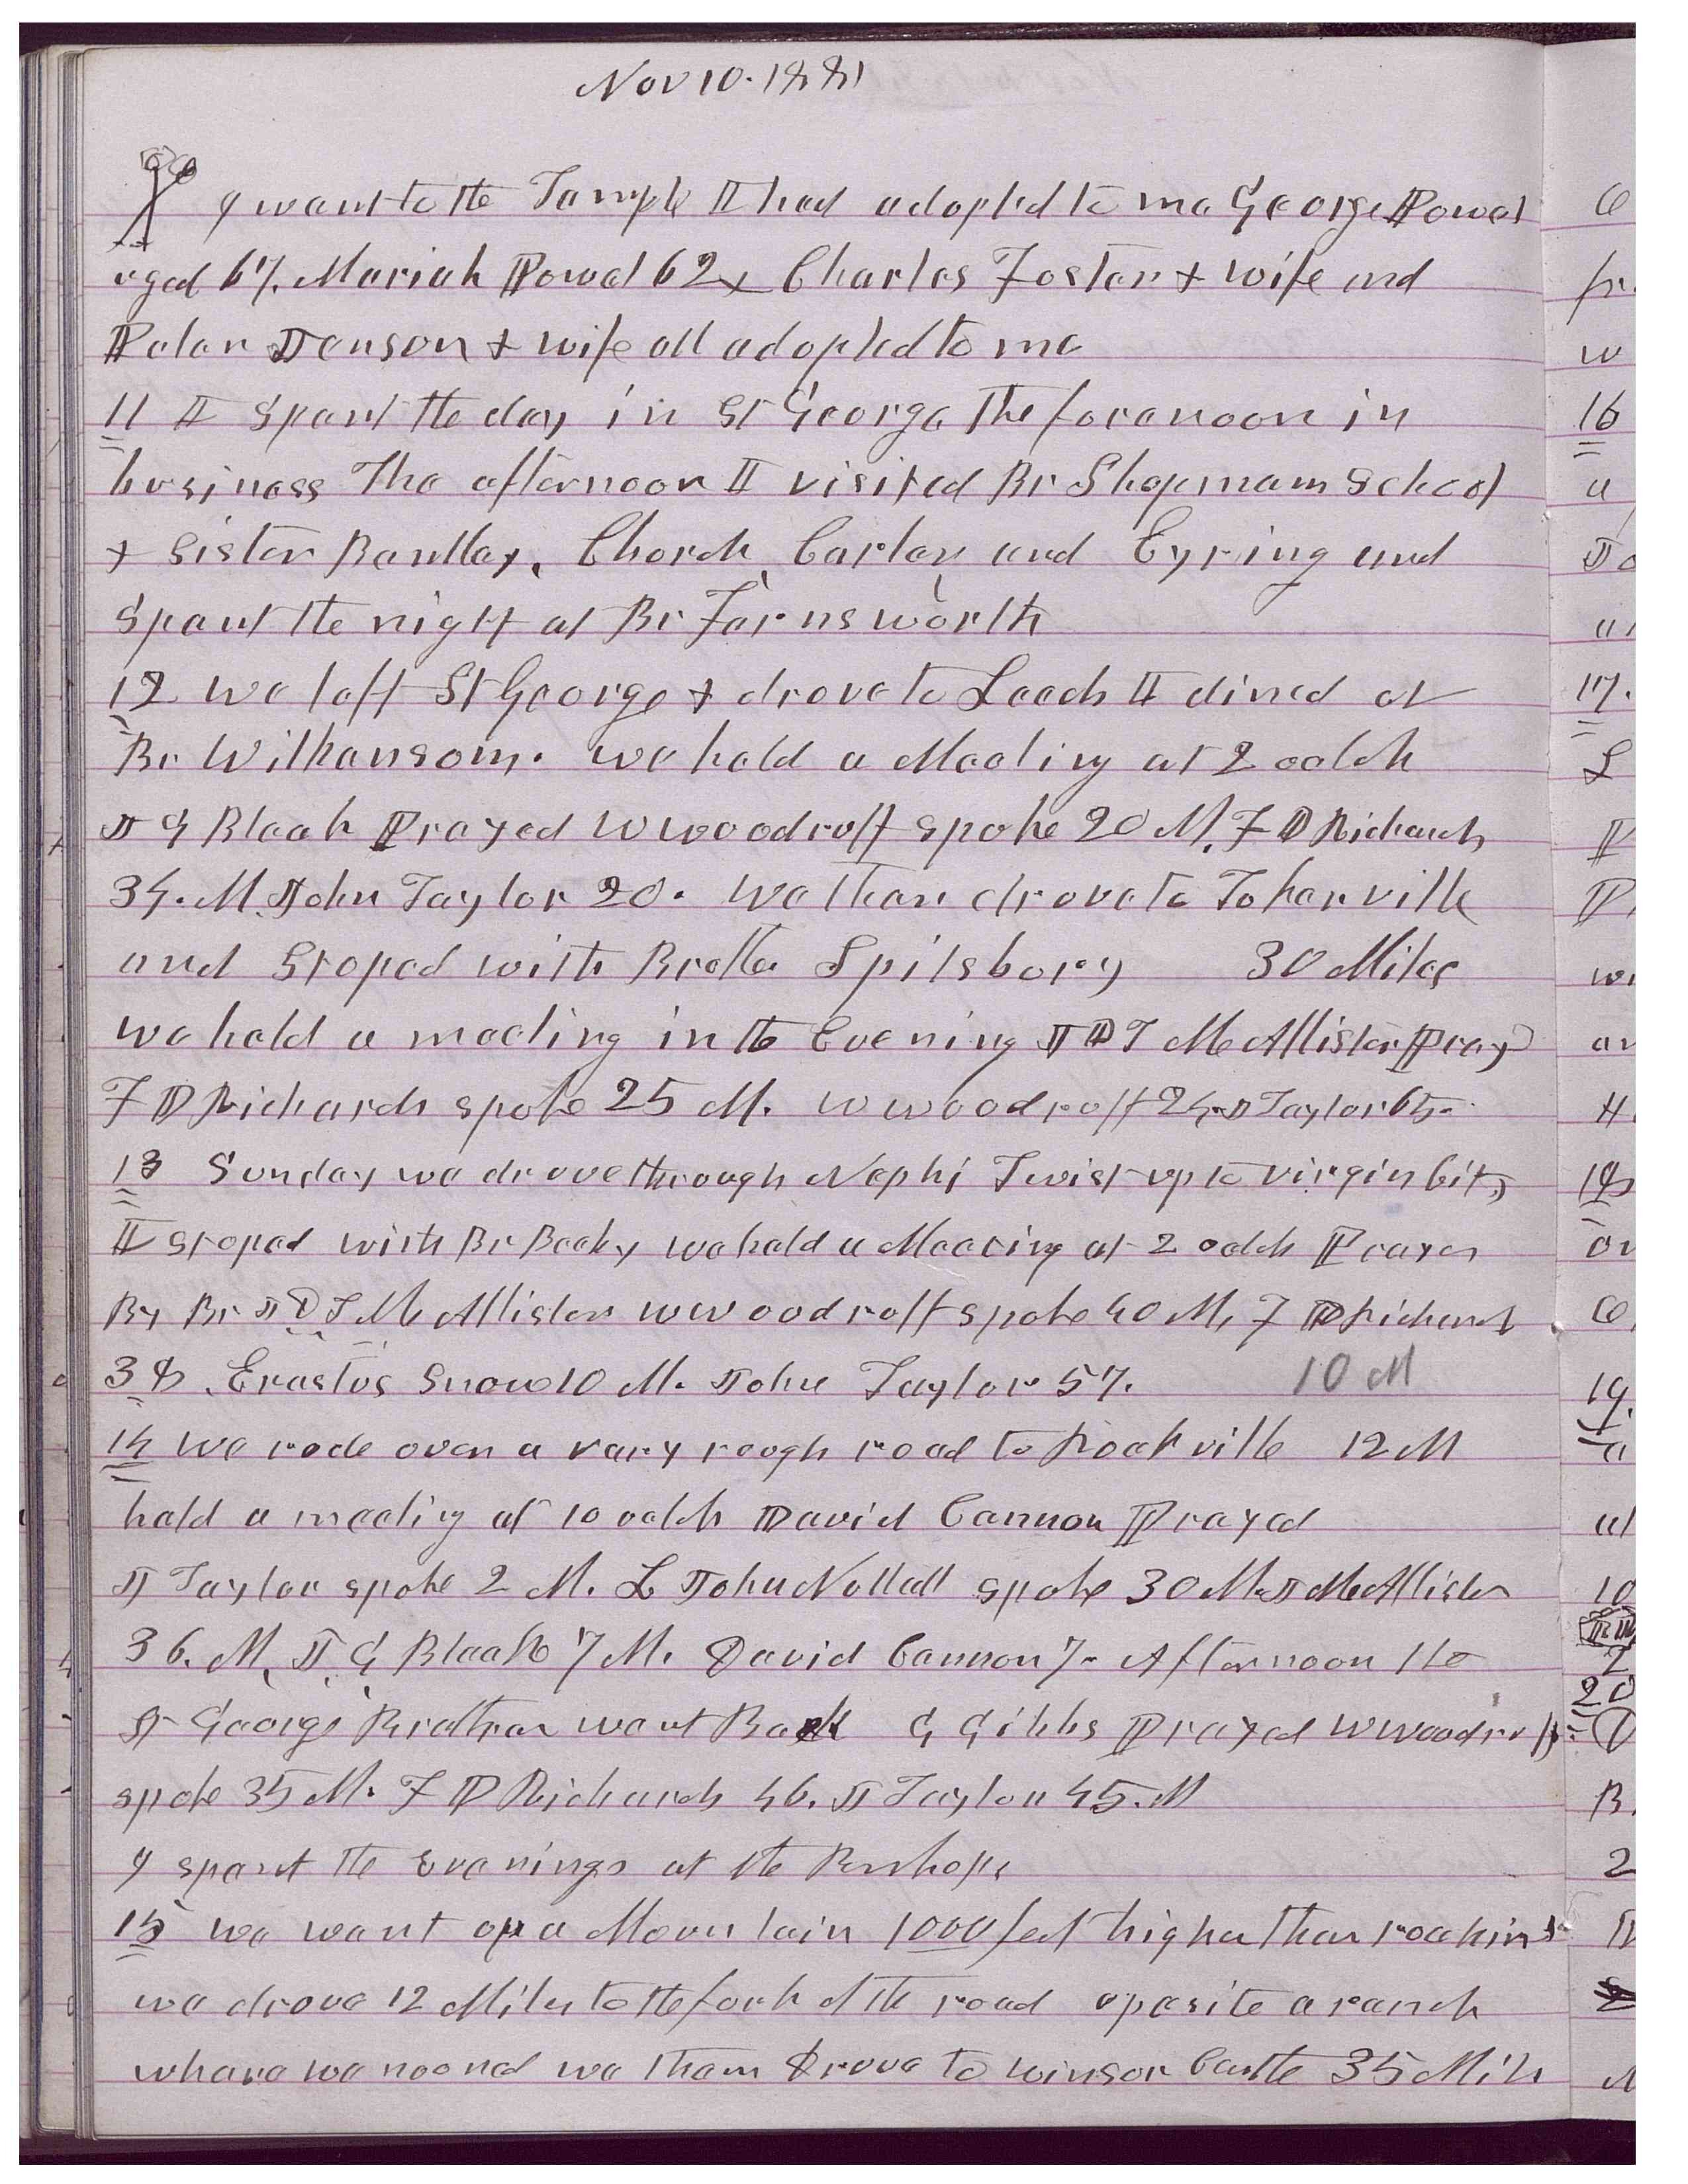 Nov 10. 1881
I went to the Temple I had adopted to me George Powel
aged 67. Mariah Powel 62, Charles Foster & wife and
Peter Jenson & wife all adopted to me
11 I Spent the day in St George The forenoon in
business The afternoon I visited Br School
& Sister Bentley, Church, Carter and Eyring and
Spent the night at Br Farnsworth
12 we left St George & drove to Leeds I dined at
Br Wilkenson. we held a Meeting at 2 oclk
J G Bleak Prayed W Woodruff spoke 20 M, F D Richards
34. M. John Taylor 20. we then drove to Tokerville
and Stoped with Brother Spilsbury 30 Miles
we held a meeting in the Evening J D T McAllister Pray
F D Richards spoke 25 M. W Woodruff 24 J Taylor 65.
13 Sunday we drove through Nephi Twist up to virgin City
I stoped with Br Beeby we held a Meeting at 2 oclk Prayer
By Br J D T McAllister W Woodruff spoke 40 M, F D Richards
38 Erastus Snow 10 M. John Taylor 57. 10 M
14 We rode over a very rough road to Rockville 12 M
held a meeting at 10 oclk David Cannon Prayed
J Taylor spoke 2 M. L John Nuttall spoke 30 M. J McAllister
36. M, J, G Bleak 7 M. David Cannon 7. Afternoon the
St George Brethren went Back G Gibbs Prayed W Woodruff
spoke 35 M. F D Richards 46. J Taylor 45. M
I spent the Evenings at the Bishops
15 we went up a Mountain 1000 feet higher than
we drove 12 Miles to the fork of the road oposite a ranch
where we nooned we then drove to winsor Castle 35 Mils